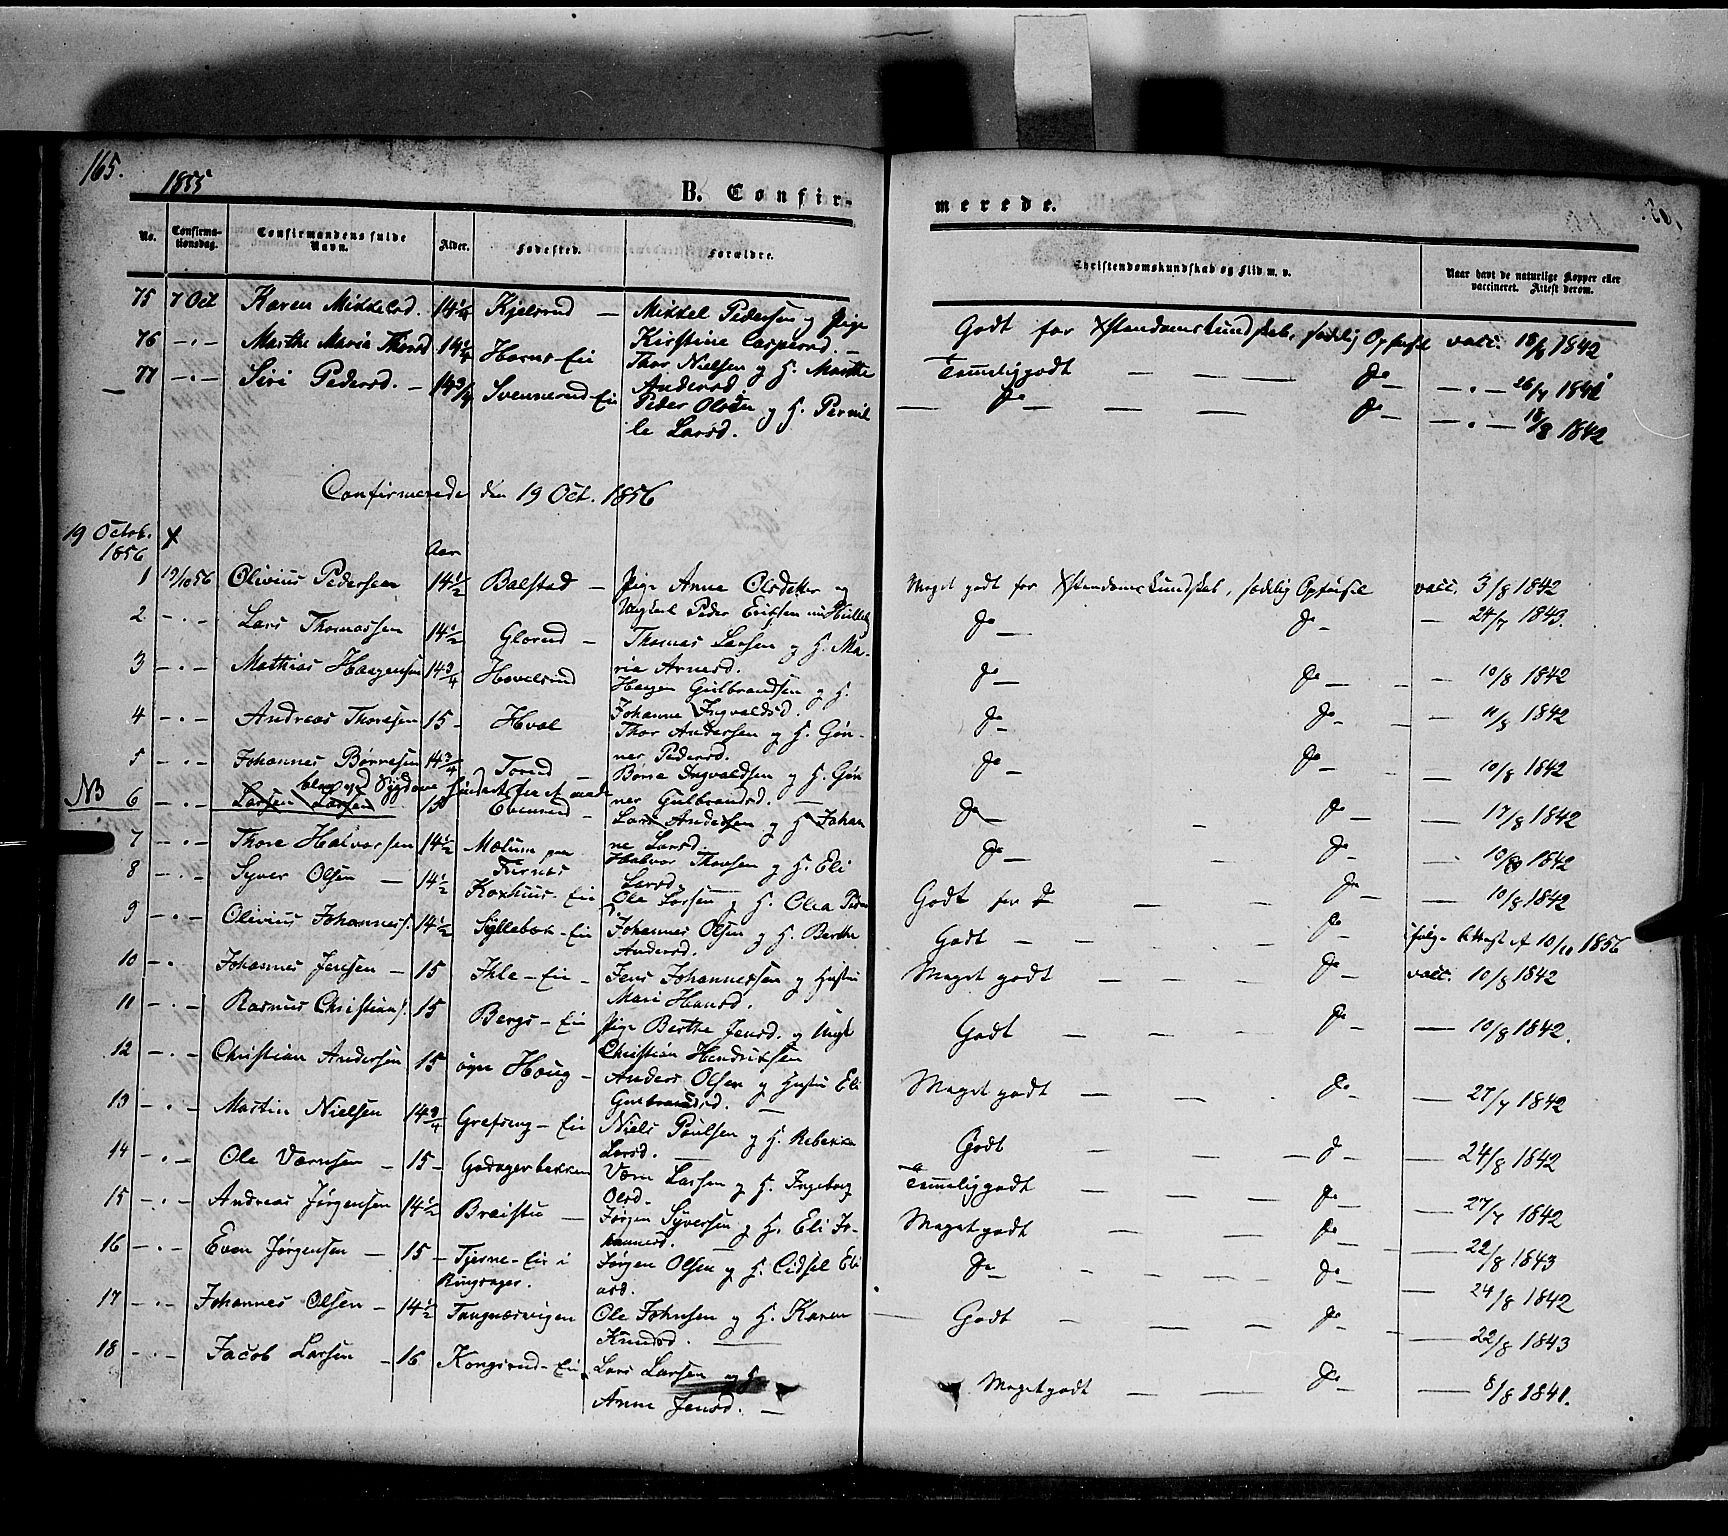 165.
1855
B. Confir-
merede.
No.
Confirma-
tionsdag.
Confirmandens fulde
Navn.
Alder.
Fødested.
Forældre.
Christendomskundskab og Flid m. v.
Naar havt de naturlige Kopper eller
vaccineret. Attest derom.
75 7 Oct Karen Mikkelsd. 14 1/4 Kjelsrud — Mikkel Pedersen og Pige
Kirstine Caspersd. —
Godt for Xstendomskundskab, sædelig Opførsel vacc. 18/8 1842
76 — " — Marthe Marie Thorsd 14 1/4 Horns-Eie Thor Nielsen og H. Marthe
Andersd.
Temelig godt — — — Do — — " — 26/7 1842
77 — " — Siri Pedersd. — 14 3/4 Svennerud-Eie Peder Olsen og H. Pernil-
le Larsd.
— Do — — — Do — — " — 18/8 1842
Confirmerede den 19 Oct. 1856
19 Octob. X
1856
Aar
1 19/10 56 Olivius Pedersen 14 1/2 Balstad — Pige Anne Olsdatter og
Ungkarl Peder Eriksen
Meget godt for Xstendoms Kundskab, sædelig Opførsel vacc. 3/8 1842
2 — " — Lars Thomassen 14 1/2 Glorud — Thomas Larsen og H. Ma-
ria Arnesd.
Do — Do — — 24/7 1843
3 — " — Mathias Haagensen 14 3/4 Hovelsrud Haagen Gulbrandsen og H.
Johanne Ingvaldsd.
Do — Do — — 10/8 1842
4 — " — Andreas Thoresen 15 — Hval Thor Andersen og H. Gøn-
ner Pedersd.
Do — Do — — 11/8 1842
5 — " — Johannes Børresen 14 3/4 Torud — Børre Ingvaldsen og H. Gøn
ner Gulbrandsd. —
Do — Do — — 10/8 1842
NB 6 — " — Larsen Larsen 15 Evensrud — Lars Andersen og H Johan
ne Larsd.
Do — Do — — 17/8 1842
7 — " — Thore Halvorsen 14 1/2 Mælum
Halvor Thoresen og H. Eli
Larsd.
Do — Do — — 10/8 1842
8 — " — Syver Olsen — 14 1/2 Koxhuus-Eie Ole Larsen og H. Olea Peder
Godt for Do — — Do — — 10/8 1842
9 — " — Olivius Johannes: 14 1/2 Syllebæk-Eie Johannes Olsen og H. Berthe
Andersd.
Godt — — — Do — ifølge Attest af 10/10 1856
10 — " Johannes Jensen — 15 Ihle-Eie — Jens Johannessen og Hustru
Mari Hansd.
Meget godt — — — Do — vacc. 10/8 1842
11 — " — Rasmus Christians: 15 Bergs-Eie Pige Berthe Jensd. og Ungk
Christian Hendriksen
Godt — — — Do — — 10/8 1842.
12 — " — Christian Andersen 15 øvre Houg — Anders Olsen og Hustru Eli
Gulbrandsd. —
Meget godt — — Do — — 27/7 1842
13 — " — Martin Nielsen 14 3/4 Grefseng-Eie Niels Poulsen og H. Rebekka
Larsd.
Godt — — — Do — — 24/8 1842
14 — " — Ole Værnsen — 15 — Godagerbakken Værn Larsen og H. Ingeborg
Olsd.
Temelig godt — — Do — — 27/7 1842
15 — " — Andreas Jørgensen 14 1/2 Braistu — Jørgen Syversen og H. Eli Jo-
hannesd.
Meget godt — — Do — — 22/8 1843
16 — " — Even Jørgensen — 15 — Tjerne-Eie i
Ringsager.
Jørgen Olsen og H. Cidsel Eli
asd.
Do — — — Do — — 24/8 1842
17 — " — Johannes Olsen — 14 1/2 Tangnæsvigen Ole Johnsen og H. Karen
Knudsd.
Godt — — — Do — — 22/8 1843
18 — " — Jacob Larsen — 16 Kongsrud-Eie Lars Larsen og H
Anne Jensd. —
Meget godt — — Do — — 8/8 1841.